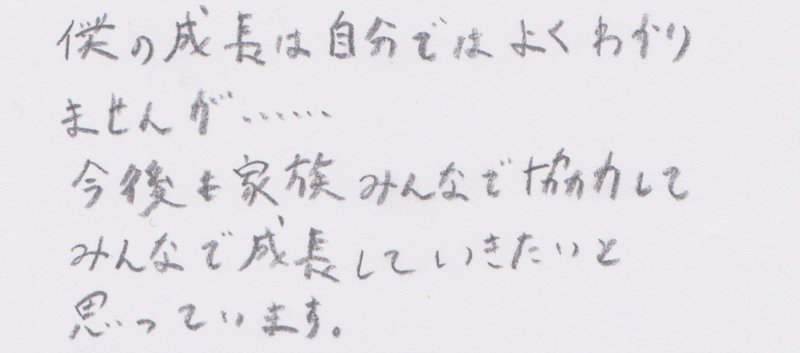 僕の成長は自分ではよくわかり
ませんが……
今後も家族みんなで協力して
みんなで成長していきたいと
思っています。